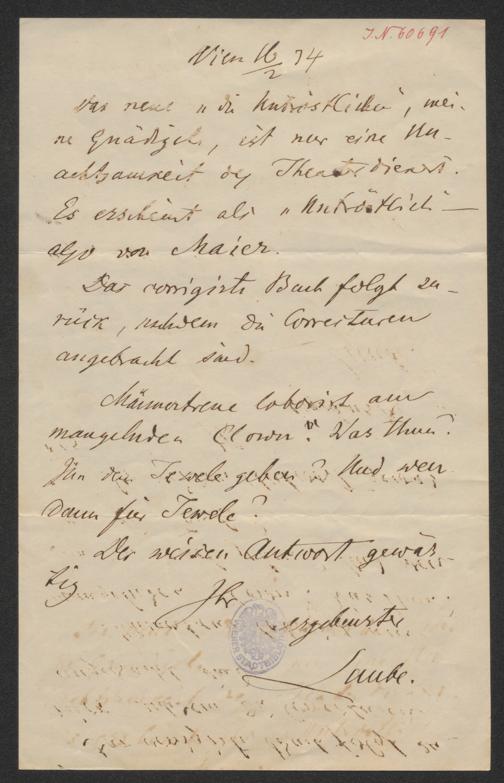 J.N. 60691
Wien 16/2 74
Das neue „die Untröstliche", mei-
ne Gnädigste, ist nur eine Un-
achtsamkeit des Theaterdieners.
Es erscheint als „Untröstlich" —
also von Maier.
Das corrigirte Buch folgt zu-
rück, nachdem die Correcturen
angebracht sind.
Männertreue laborirt am
mangelnden Clown. Was thun?
Ihn dem Tewele geben? Und wen
dann für Tewele?
Der weisen Antwort gewär-
tig
Ihr
ergebenster
Laube.